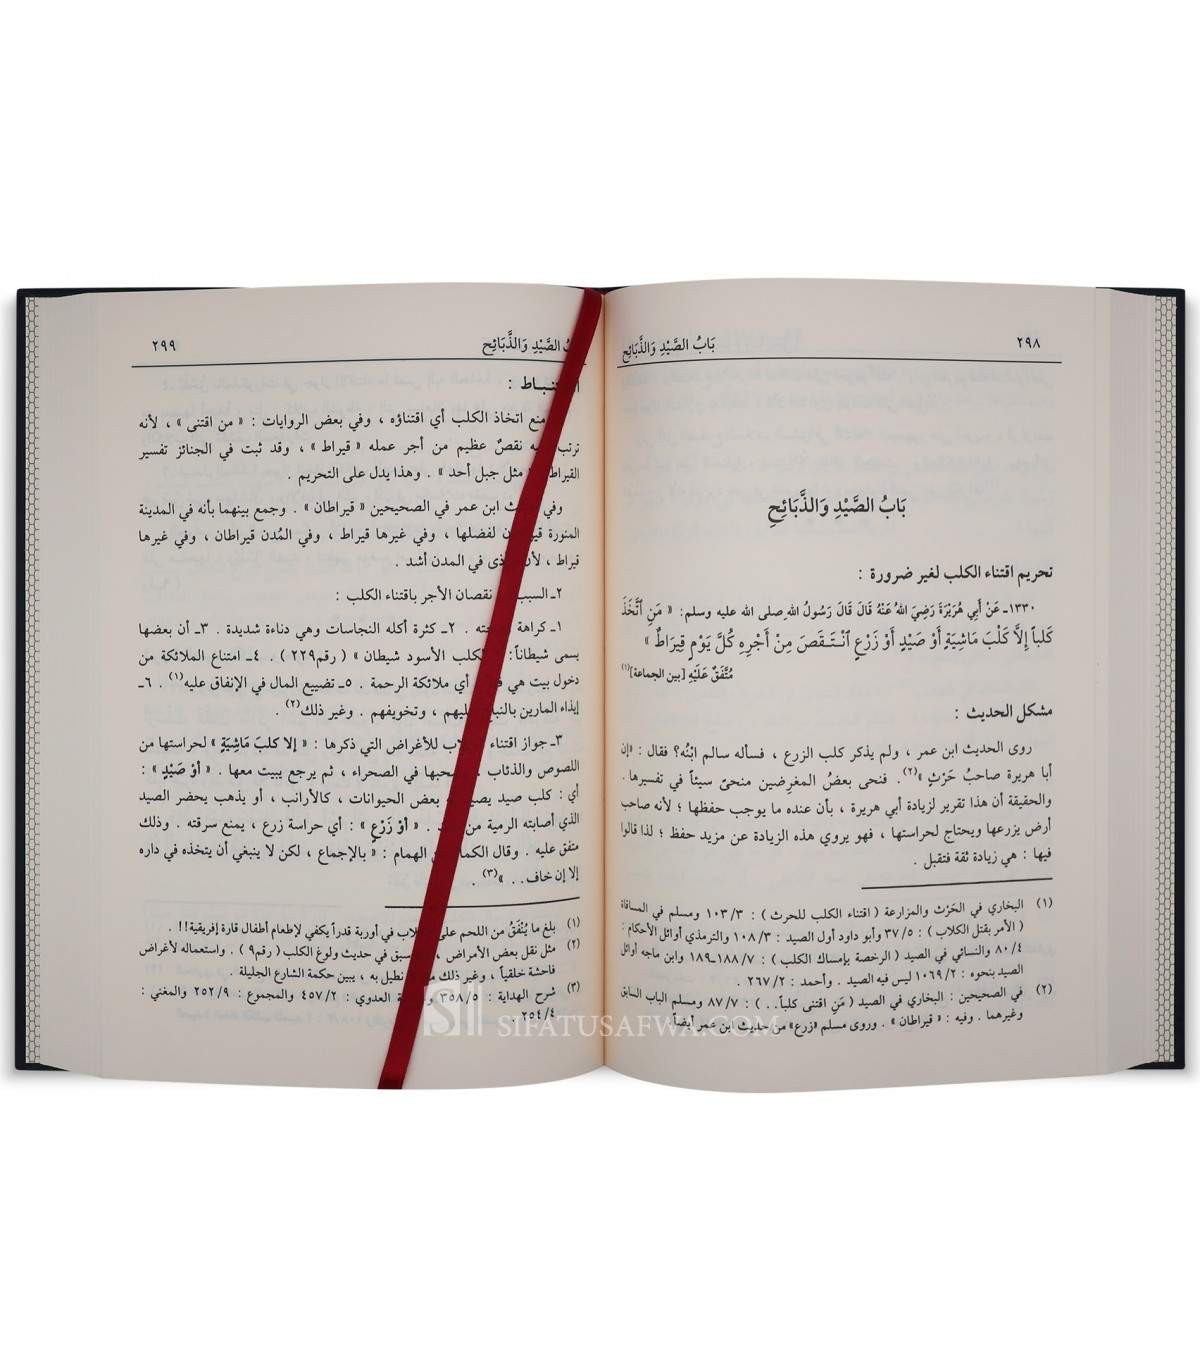 ٢٩٨
بَابُ الصَّيْدِ وَالذَّبَائِحِ
بَابُ الصَّيْدِ وَالذَّبَائِحِ
تحريم اقتناء الكلب لغير ضرورة :
١٣٣٠ـ عَنْ أَبِي هُرَيْرَةَ رَضِيَ اللهُ عَنْهُ قَالَ قَالَ رَسُولُ اللهِ صلى الله عليه وسلم: « مَنِ اتَّخَذَ
كَلْباً إِلَّا كَلْبَ مَاشِيَةٍ أَوْ صَيْدٍ أَوْ زَرْعٍ انْتَقَصَ مِنْ أَجْرِهِ كُلَّ يَوْمٍ قِيرَاطٌ »
مُتَّفَقٌ عَلَيْهِ [بين الجماعة](١)
مشكل الحديث :
روى الحديث ابن عمر ، ولم يذكر كلب الزرع ، فسأله سالم ابْنُه؟ فقال : «إن
أبا هريرة صاحبُ حَرْثٍ »(٢). فنحى بعضُ المغرِضين منحىً سيئاً في تفسيرها.
والحقيقة أن هذا تقرير لزيادة أبي هريرة ، بأن عنده ما يوجب حفظها ؛ لأنه صاحب
أرض يزرعها ويحتاج لحراستها ، فهو يروي هذه الزيادة عن مزيد حفظ ؛ لذا قالوا
فيها : هي زيادة ثقة فتقبل .
(١) البخاري في الحَرْث والمزارعة ( اقتناء الكلب للحرث ) : ١٠٣/٣ ومسلم في المساقاة
( الأمر بقتل الكلاب ) : ٣٧/٥ وأبو داود أول الصيد : ١٠٨/٣ والترمذي أوائل الأحكام :
٨٠/٤ والنسائي في الصيد ( الرخصة بإمساك الكلب ) : ١٨٨/٧ـ١٨٩ وابن ماجه أوائل
الصيد بنحوه : ١٠٦٩/٢ ليس فيه الصيد . وأحمد : ٢٦٧/٢ .
(٢) في الصحيحين : البخاري في الصيد ( مَنِ اقتنى كلباً.. ) : ٨٧/٧ ومسلم الباب السابق
وغيرهما . وفيه : « قيراطان » . وروى مسلم «زرع» من حديث ابن عمر أيضاً.
الصَّيْدِ وَالذَّبَائِحِ
٢٩٩
منع اتخاذ الكلب أي اقتناؤه ، وفي بعض الروايات : « من اقتنى » ، لأنه
ترتب نقصٌ عظيم من أجر عمله « قيراط » ، وقد ثبت في الجنائز تفسير
القيراط مثل جبل أحد » . وهذا يدل على التحريم .
وفي ابن عمر في الصحيحين « قيراطان » . وجمع بينهما بأنه في المدينة
المنورة لفضلها ، وفي غيرها قيراط ، وفي المُدن قيراطان ، وفي غيرها
قيراط ، في المدن أشد .
٢ـ السبب نقصان الأجر باقتناء الكلب :
١ـ كراهة . ٢ـ كثرة أكله النجاسات وهي دناءة شديدة . ٣ـ أن بعضها
يسمى شيطاناً: الكلب الأسود شيطان » ( رقم٢٢٩ ) . ٤ـ امتناع الملائكة من
دخول بيت هي أي ملائكة الرحمة . ٥ـ تضييع المال في الإنفاق عليه(١) . ٦ـ
إيذاء المارين عليهم ، وتخويفهم . وغير ذلك(٢) .
٣ـ جواز اقتناء للأغراض التي ذكرها : « إلا كلبَ مَاشِيَةٍ » لحراستها من
اللصوص والذئاب ، في الصحراء ، ثم يرجع يبيت معها . « أَوْ صَيْدٍ » :
أي : كلب صيد بعض الحيوانات ، كالأرانب ، أو يذهب يحضر الصيد
الذي أصابته الرمية من . « أَوْ زَرْعٍ » : أي حراسة زرع ، يمنع سرقته . وذلك
متفق عليه . وقال الهمام : « بالإجماع ، لكن لا ينبغي أن يتخذه في داره
إلا إن خاف.. »(٣) .
(١) بلغ ما يُنْفَقُ من اللحم في أوربة قدراً يكفي لإطعام أطفال قارة إفريقية!! .
(٢) مثل نقل بعض الأمراض ، سبق في حديث ولوغ الكلب ( رقم٩ ) . واستعماله لأغراض
فاحشة خلقياً ، وغير ذلك نطيل به ، يبين حكمة الشارع الجليلة .
(٣) شرح الهداية : ٣٥٨/٥ العدوي : ٤٥٧/٢ والمجموع : ٢٥٢/٩ والمغني :
٢٥٤/٤ .
SIFATUSAFWA.COM